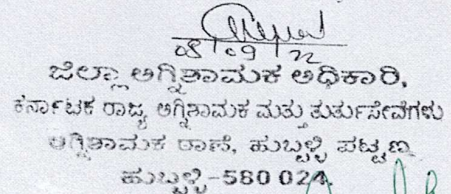 08/09/22
ಜಿಲ್ಲಾ ಅಗ್ನಿಶಾಮಕ ಅಧಿಕಾರಿ,
ಕರ್ನಾಟಕ ರಾಜ್ಯ ಅಗ್ನಿಶಾಮಕ ಮತ್ತು ತುರ್ತುಸೇವೆಗಳು
ಅಗ್ನಿಶಾಮಕ ಠಾಣೆ, ಹುಬ್ಬಳ್ಳಿ ಪಟ್ಟಣ
ಹುಬ್ಬಳ್ಳಿ-580 024